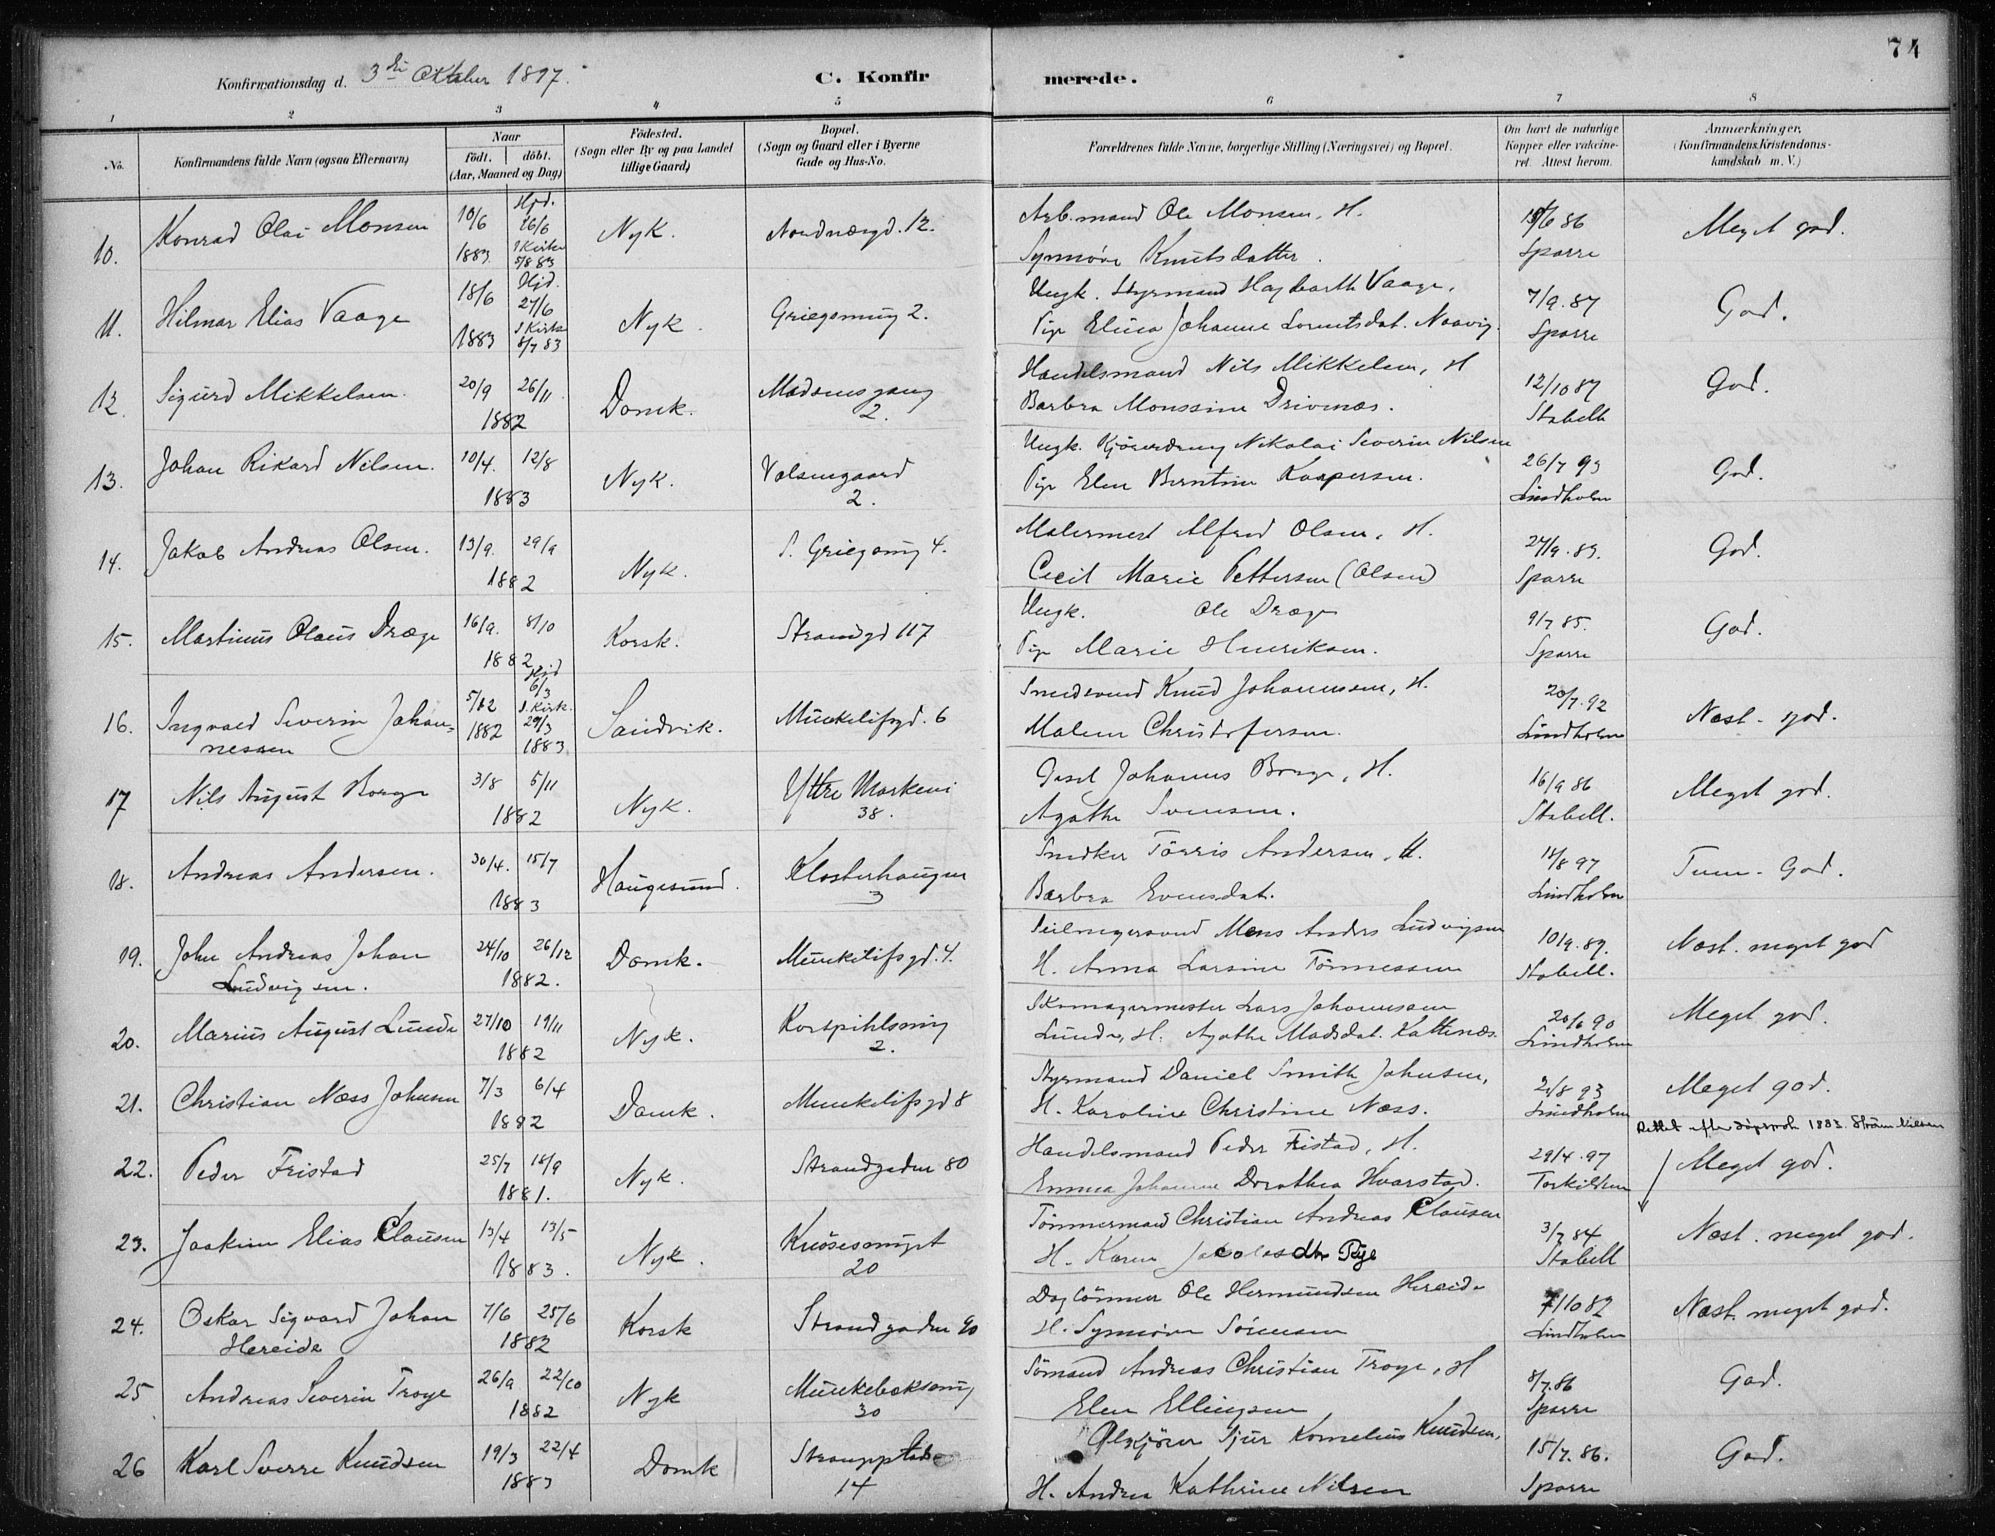 74
Konfirmationsdag d. 3die Oktober 1897.
C. Konfirmerede.
1 2 3 4 5 6 7 8
No.
Konfirmandens fulde Navn (ogsaa Efternavn)
Naar
födt. döbt.
(Aar, Maaned og Dag)
Födested.
(Sogn eller By og paa Landet
tillige Gaard)
Bopæl.
(Sogn og Gaard eller i Byerne
Gade og Hus-No.
Forældrenes fulde Navne, borgerlige Stilling (Næringsvei) og Bopæl.
Om havt de naturlige
Kopper eller vakcine-
ret. Attest herom.
Anmærkninger,
(Konfirmandens Kristendoms-
kundskab m. V.)
10. Konrad Olai Monsen 10/6 1883. Hjd. 16/6 I Kirke 5/8 83 Nyk. Nordnæsgd. 12.
Arb.mand Ole Monsen, H.
Synnöve Knutsdatter.
/6 86 Sparre Meget god.
11. Hilmar Elias Vaage 18/6 1883 Hjd. 27/6 I Kirke 8/7 83 Nyk. Griegsmug 2.
Ungk. Styrmand Hagbarth Vaage,
Pige Elisa Johanne Lorentsdat. Naavig.
7/9.87 Sparre God.
12. Sigurd Mikkelsen. 20/9 26/11 1882 Domk. Madsensgang 2.
Handelsmand Nils Mikkelsen, H
Barbra Monssine Drivenæs.
12/10 87 Stabell God.
13. Johan Rikard Nilsen. 10/4. 12/8 1883 Nyk. Valsengaard 2.
Ungk. Kjöredreng Nikolai Severin Nilsen
Pige Elen Berntine Kaspersen.
26/7 93 Lindholm God.
14. Jakob Andreas Olsen. 13/9. 29/9 1882 Nyk. S. Griegsmug 4.
Malermest Alfred Olsen, H.
Cecil Marie Pettersen (Olsen)
27/9.83. Sparre God.
15. Martinus Olaus Dræge 16/9. 8/10 1882 Korsk. Strandgd 117
Ungk. Ole Dræge
Pige Marie Henriksen.
9/7 85. Sparre God.
16. Ingvald Severin Johan-
nessen 5/12 1882 Hjd 6/3 I. Kirk. 29/3 1883 Sandvik. Munkelifsgd. 6
Smedsvend Knud Johannessen, H.
Malene Christofersen.
20/7.92 Lindholm Næst. god.
17 Nils August Borge 3/8 5/11 1882 Nyk. Yttre Markevei 38.
Johannes Borge, H.
Agathe Svensen.
16/9 86 Stabell. Meget god.
18. Andreas Andersen. 30/4. 15/7 1883 Haugesund. Klosterhaugen 3
Snedker Törris Andersen, H.
Barbra Evensdat.
18/8 97 Lindholm Tem. God.
19. John Andreas Johan
Ludvigsen. 24/10 26/12 1882. Domk. Munkelifsgd. 4.
Seilmagersvend Mons Anders Ludvigsen
H. Anna Larsine Tönnessen
10/9.89. Stabell. Næst. meget god
20. Marius August Lunde 27/10 19/11 1882 Nyk. Korspihlsmug 2.
Skomagermester Lars Johannesen
Lunde, H. Agathe Madsdat. Kattenæs.
20/6 90 Lindholm Meget god.
21. Christian Næss Johnsen 7/3 6/4 1882 Domk. Munkelifsgd 8
Styrmand Daniel Smith Johnsen,
H. Karoline Christine Næss.
21/8 93 Lindholm Meget god.
Rettet efter döpsprot. 1883. Ström Nilsen
22. Peder Fristad 25/7 18/9 1881. Nyk. Strandgaden 80
Handelsmand Peder Fristad, H.
Emma Johanne Dorothea Hvarstad.
29/4.97 Torkildsen Meget god.
23. Joakim Elias Clausen 13/4 13/5 1883. Nyk. Knösesmuget 20
Tömmermand Christian Andreas Clausen
H. Karen Jacobsdtr Tye
3/7 84 Stabell Næst. meget god.
24. Oskar Sigvard Johan
Hereide 7/6 25/6 1882 Korsk Strandgaden 90
Daglönner Ole Hermundsen Hereide
H. Synnöve Sörensen
7/10 82 Lindholm Næst. meget god.
25 Andreas Severin Troye 26/9 22/10 1882 Nyk Munkebæksmug 30
Sömand Andreas Christian Troye, H
Elen Ellingsen
8/7.86 Sparre God.
26 Karl Sverre Knudsen 19/3 22/4 1883 Domk 14
Sjur Kornelius Knudsen,
H. Andrea Kathrine Nilsen
15/7.86. Sparre God.